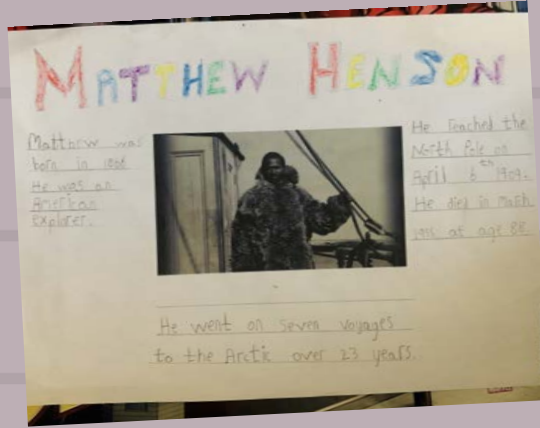 MATTHEW HENSON
Matthew was
born in 1866
He was an
American
explorer.
He reached the
North Pole on
April 6th 1909.
He died in March
1955 at age 88.
He went on seven voyages
to the Arctic over 23 years.